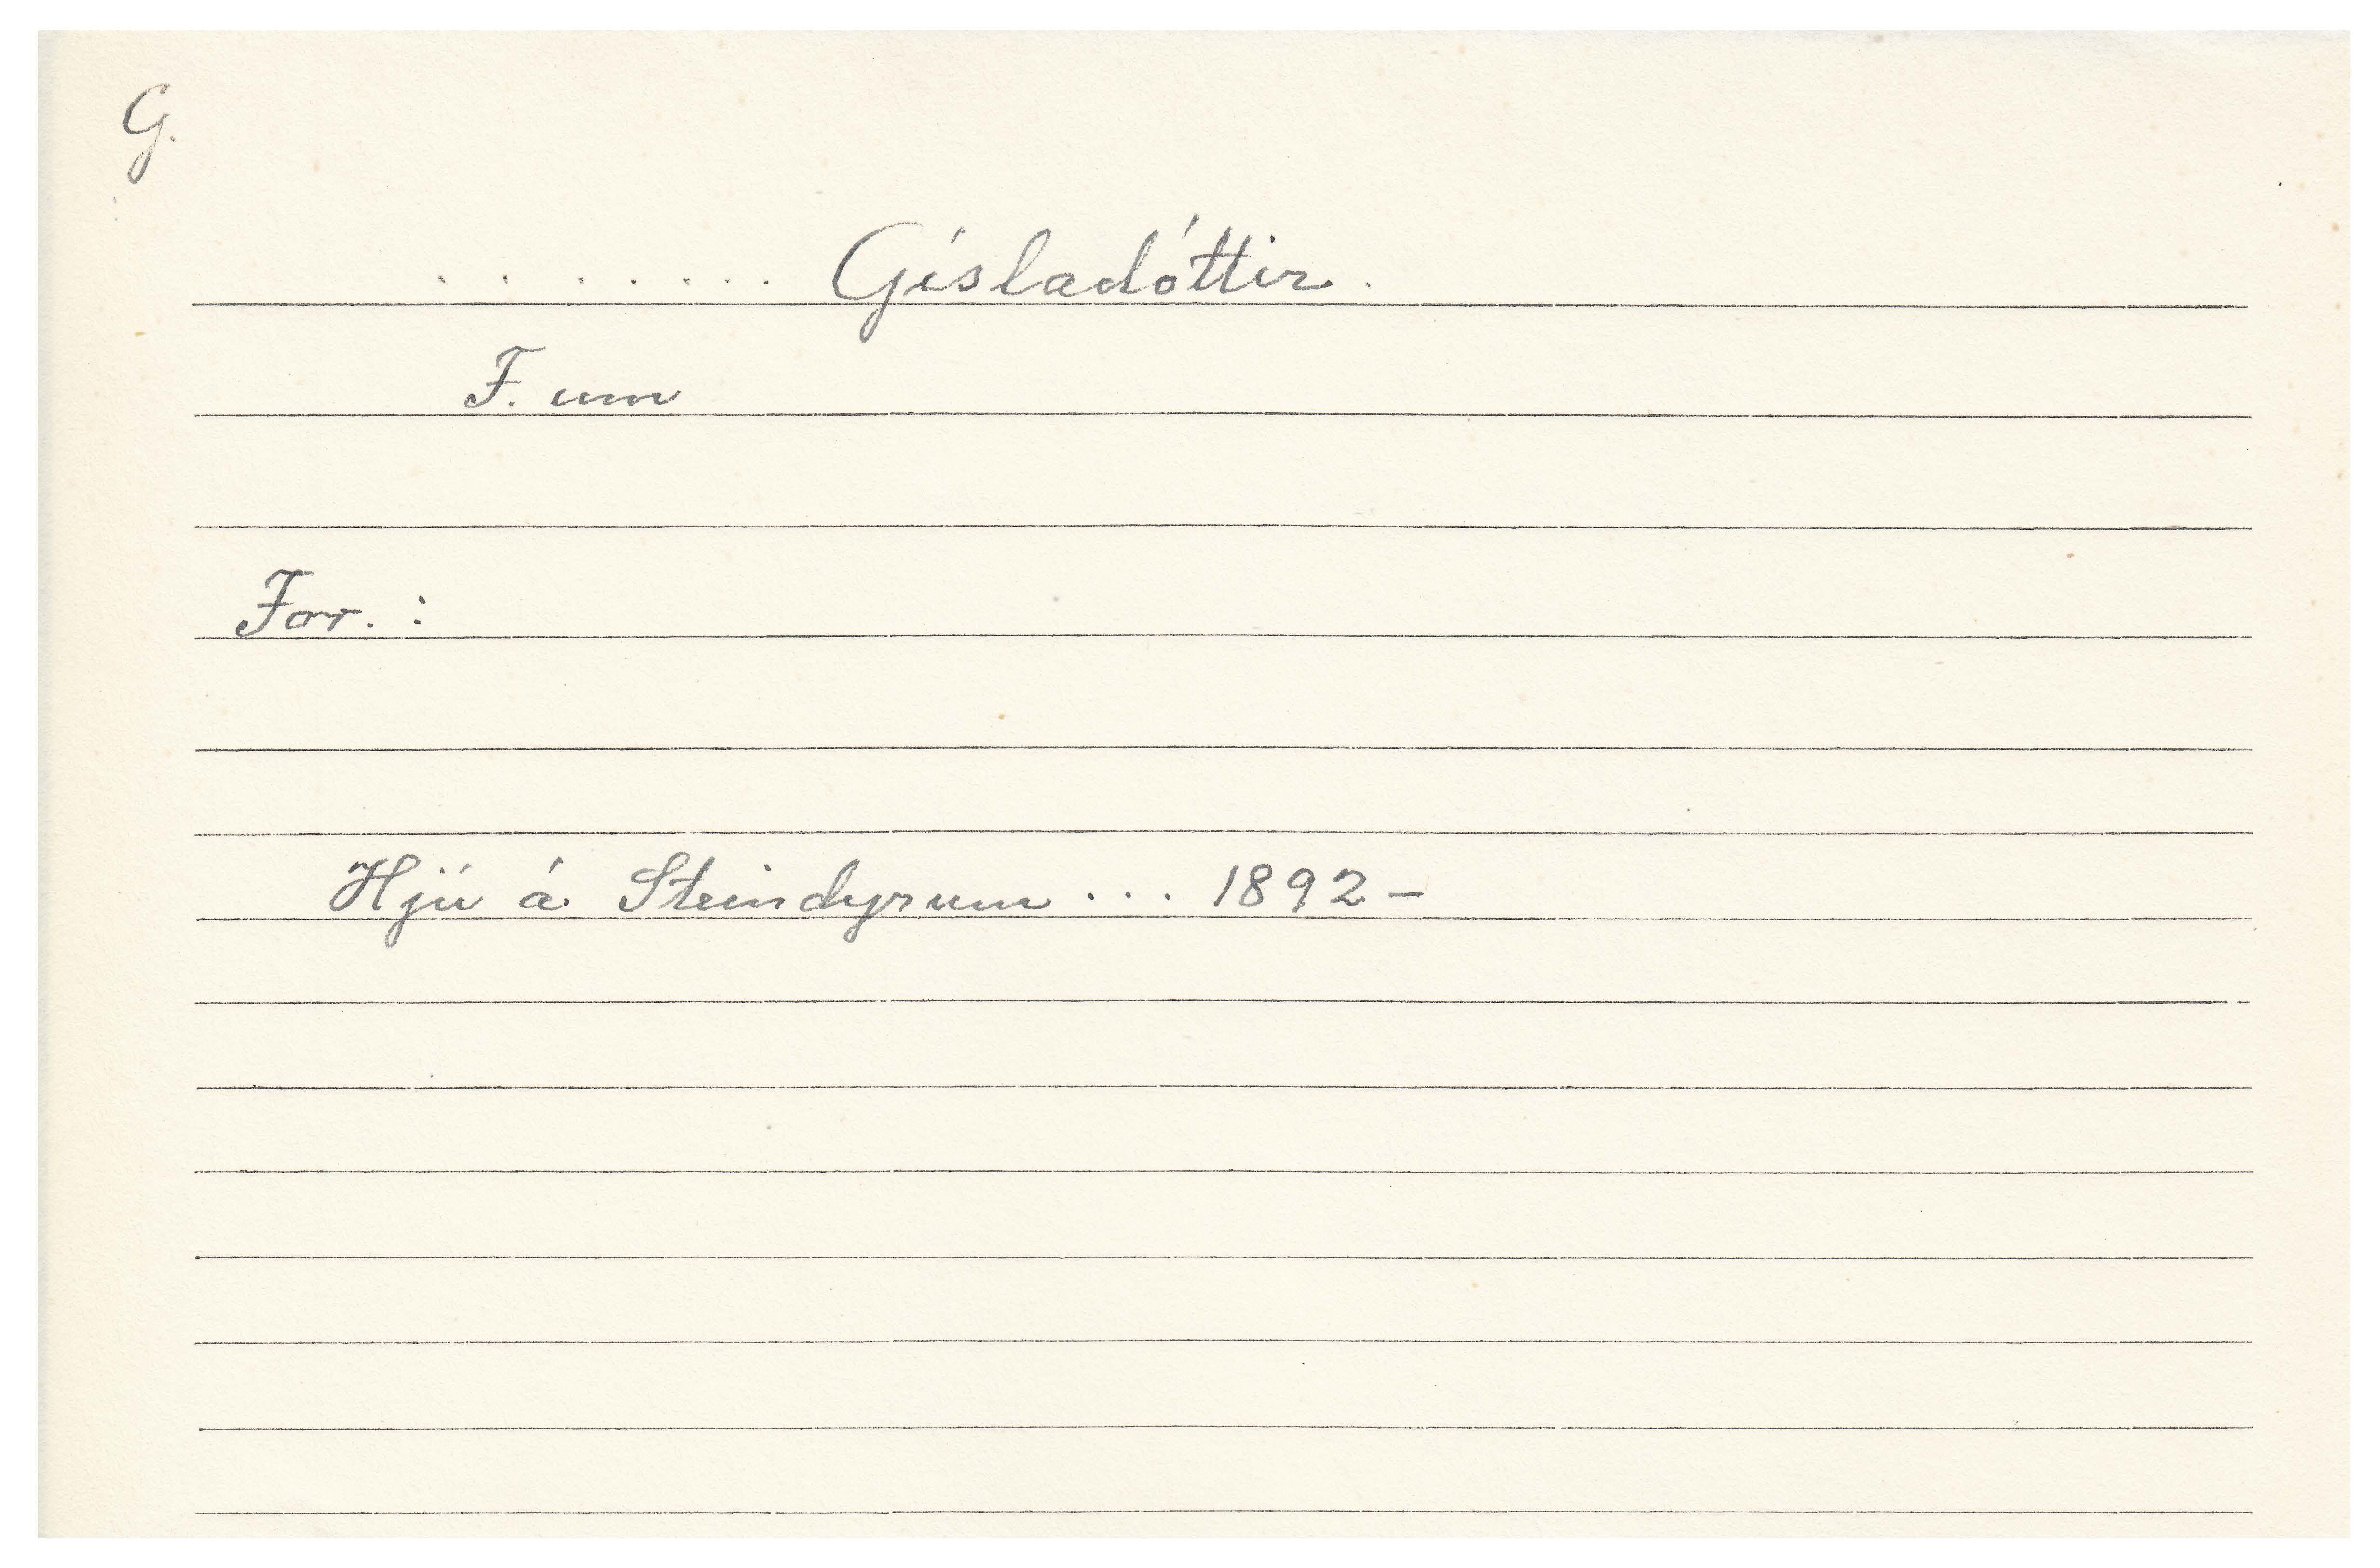 G.
........ Gísladóttir.
F. um
For. :
Hjú á Steindyrum ... 1892 –